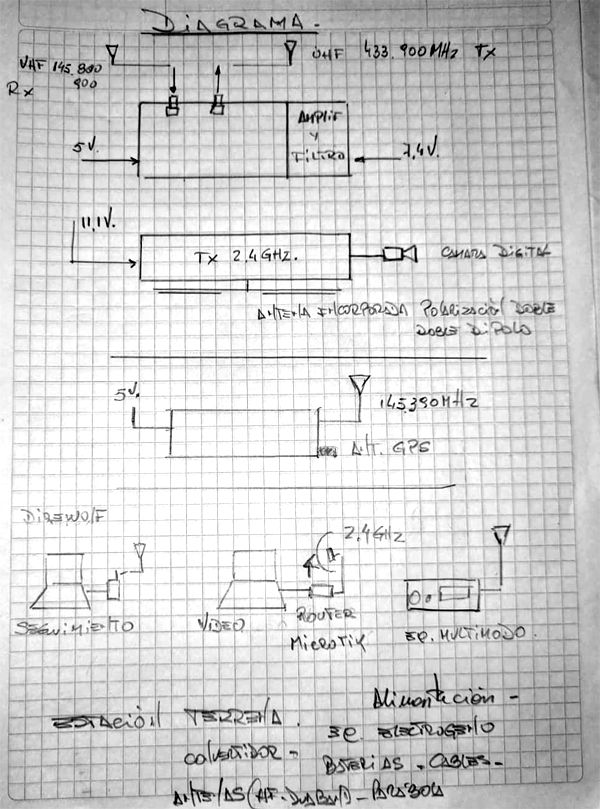 DIAGRAMA.
UHF 433.900MHz Tx
VHF 145.800
900
Rx
AMPLIF
Y
FILTRO
5V.
7,4V.
11,1V.
Tx 2.4GHz.
CAMARA DIGITAL
ANTENA INCORPORADA POLARIZACIÓN DOBLE
DOBLE DIPOLO
5V.
145.390MHz
ANT. GPS
DIREWOLF
2.4GHz
SEGUIMIENTO
VIDEO
ROUTER
MICROTIK
EQ. MULTIMODO.
Alimentación -
ESTACIÓN TERRENA.
EQ. ELECTROGENO
CONVERTIDOR -
BATERIAS - CABLES -
ANTENAS (HF-DUABAN) - PARABOLA